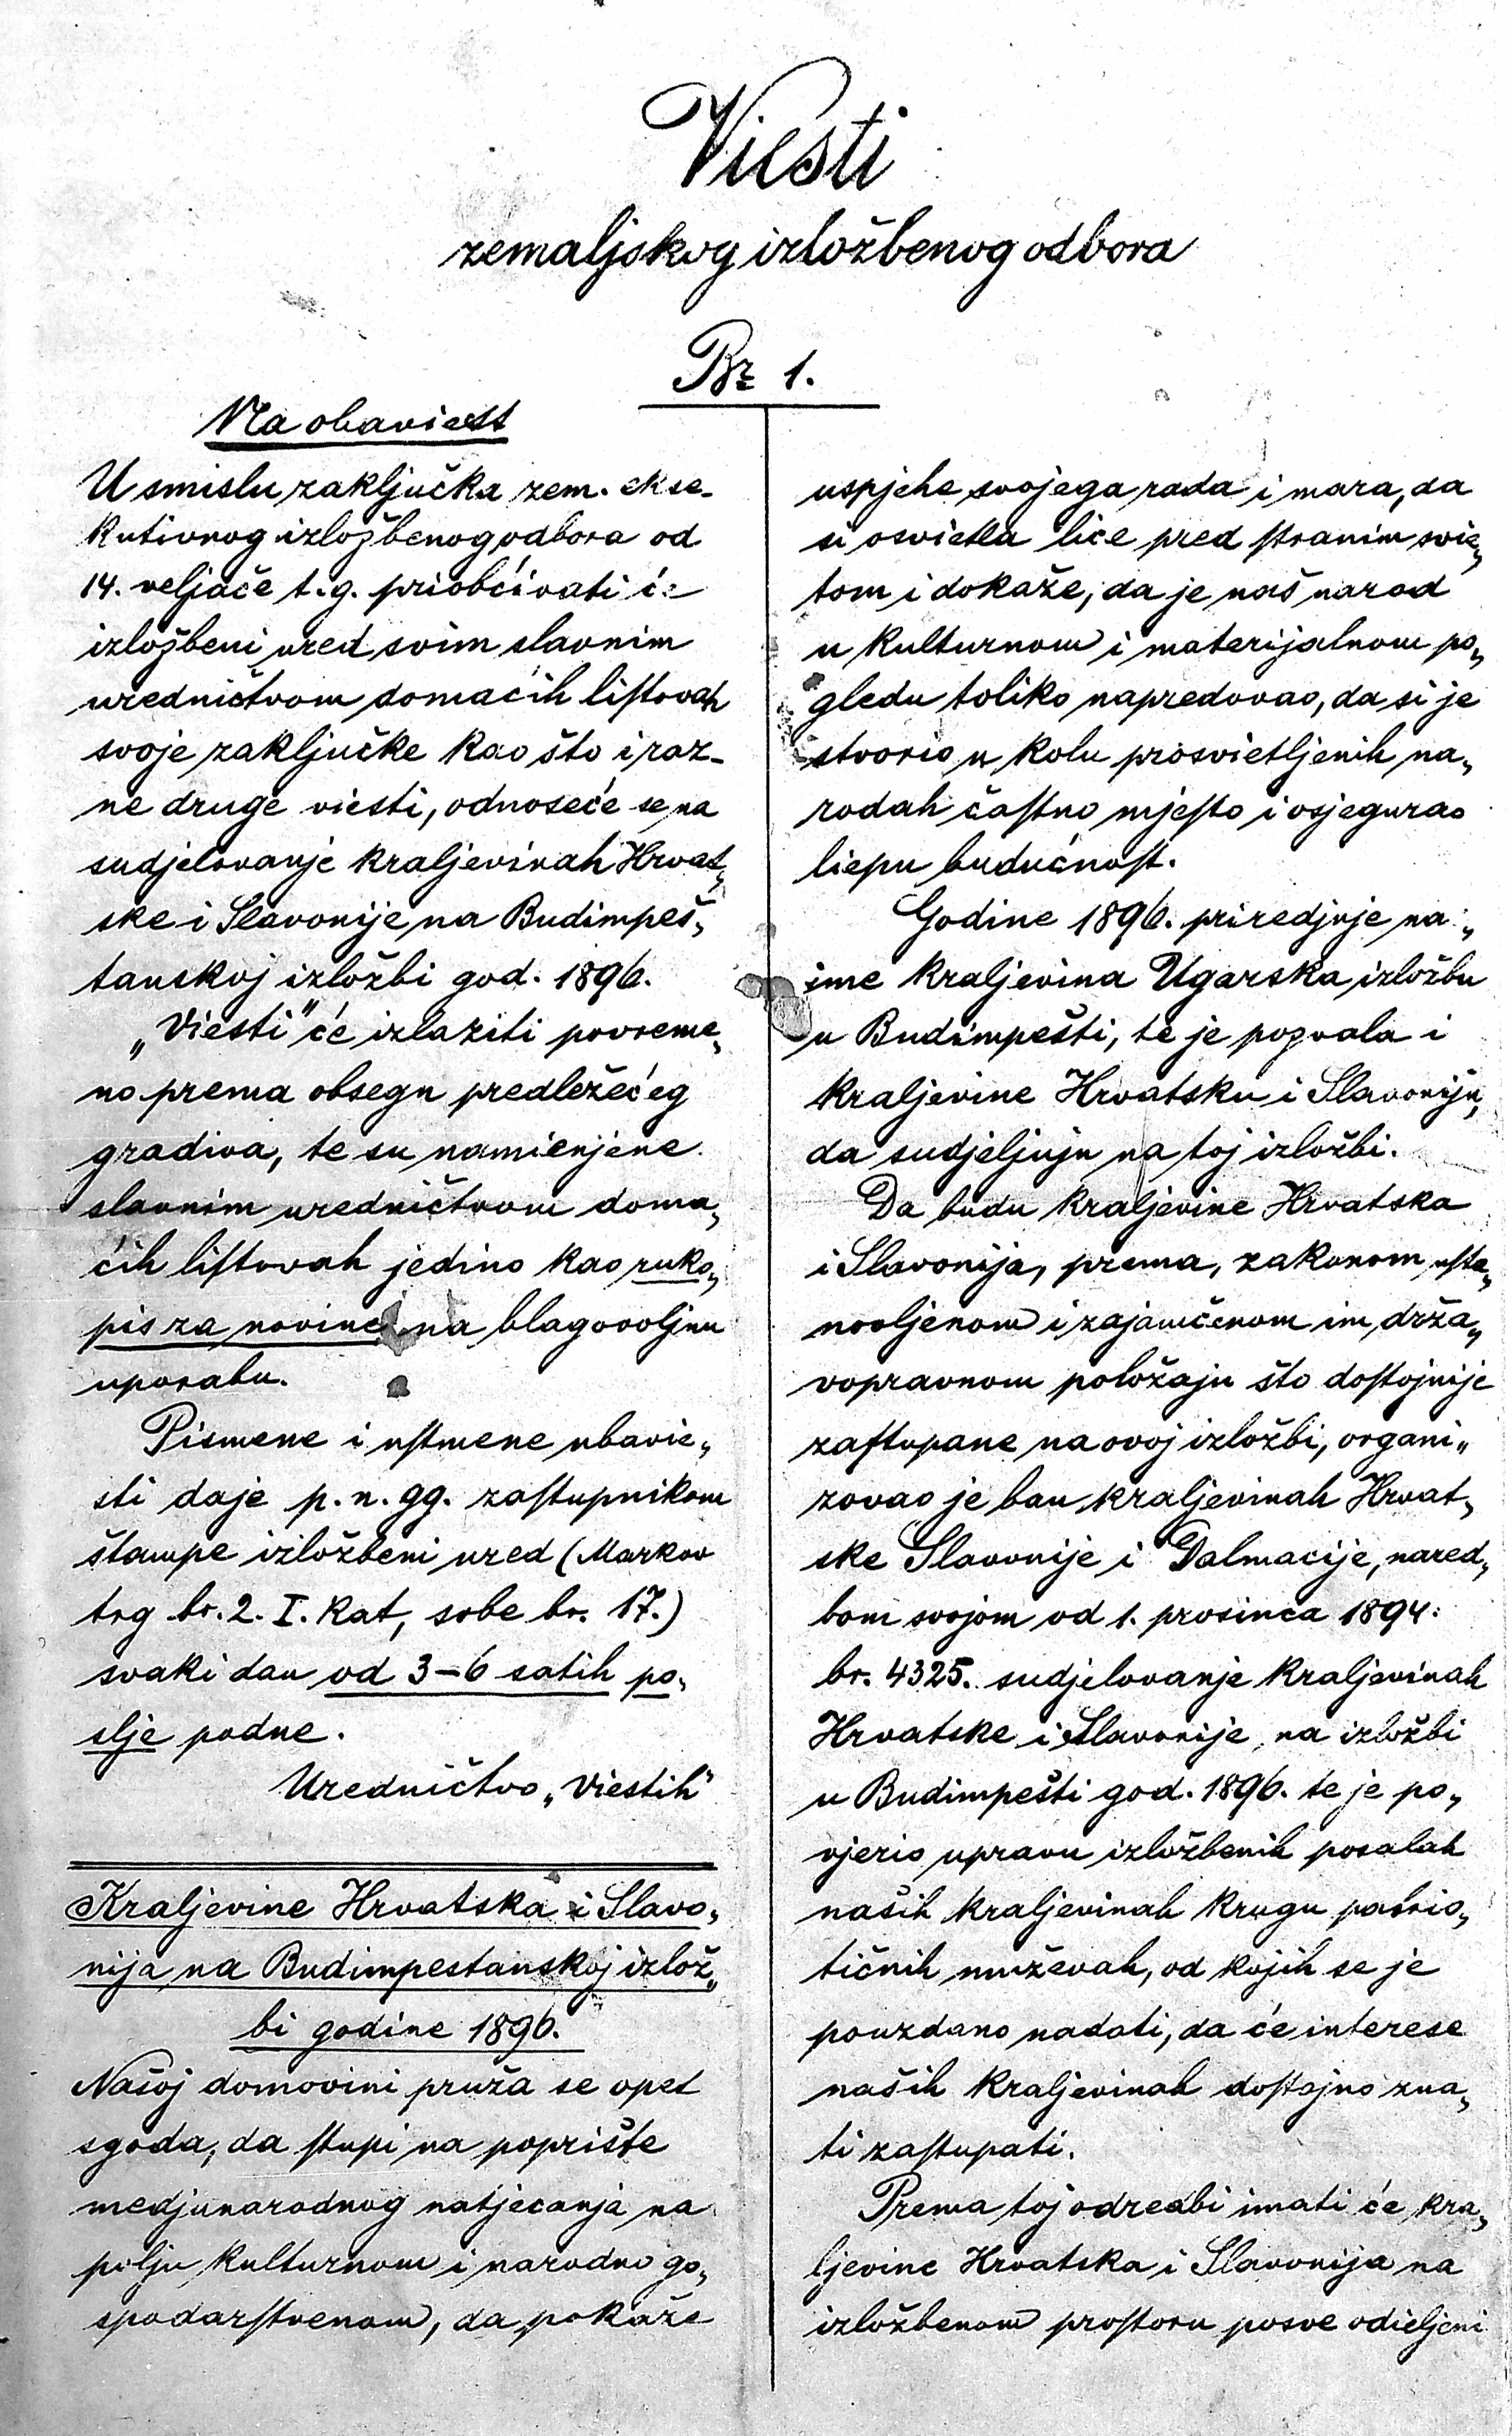 Viesti
zemaljskog izložbenog odbora
Br 1.
Na obaviest
U smislu zaključka zem. ekse-
kutivnog izložbenog odbora od
14. veljače t.g. priobćivati će
izložbeni ured svim slavnim
uredničtvom domaćih listovah
svoje zaključke kao što i raz-
ne druge viesti, odnoseće se na
sudjelovanje kraljevinah Hrvat„
ske i Slavonije na Budimpeš„
tanskoj izložbi god. 1896.
„Viesti" će izlaziti povreme„
no prema obsegu predležećeg
gradiva, te su namienjene
slavnim uredničtvom doma„
ćih listovah jedino kao ruko„
pis za novine na blagovoljnu
uporabu.
Pismene i ustmene ubavie„
sti daje p. n. gg. zastupnikom
štampe izložbeni ured (Markov
trg br. 2. I. kat, sobe br. 17.)
svaki dan od 3-6 satih po„
slje podne.
Uredničtvo „Viestih"
Kraljevine Hrvatska i Slavo„
nija na Budimpestanskoj izlož„
bi godine 1896.
Našoj domovini pruža se opet
sgoda, da stupi na poprište
medjunarodnog natjecanja na
polju kulturnom i narodno go„
spodarstvenom, da pokaže
uspjehe svojega rada i mara, da
si osvietla lice pred stranim svie„
tom i dokaže, da je naš narod
u kulturnom i materijalnom po„
gledu toliko napredovao, da si je
stvorio u kolu prosvietljenih na„
rodah častno mjesto i osjegurao
liepu budućnost.
Godine 1896. priredjuje na„
ime kraljevina Ugarska izložbu
u Budimpešti, te je pozvala i
kraljevine Hrvatsku i Slavoniju,
da sudjeljuju na toj izložbi.
Da budu kraljevine Hrvatska
i Slavonija, prema, zakonom usta„
novljenom i zajamčenom im, drža„
vopravnom položaju što dostojnije
zastupane na ovoj izložbi, organi„
zovao je ban kraljevinah Hrvat„
ske Slavonije i Dalmacije, nared„
bom svojom od 1. prosinca 1894.
br. 4325. sudjelovanje kraljevinah
Hrvatske i Slavonije na izložbi
u Budimpešti god. 1896. te je po„
vjerio upravu izložbenih posalah
naših kraljevinah krugu patrio„
tičnih muževah, od kojih se je
pouzdano nadati, da će interese
naših kraljevinah dostojno zna„
ti zastupati.
Prema toj odredbi imati će kra„
ljevine Hrvatska i Slavonija na
izložbenom prostoru posve odieljeni